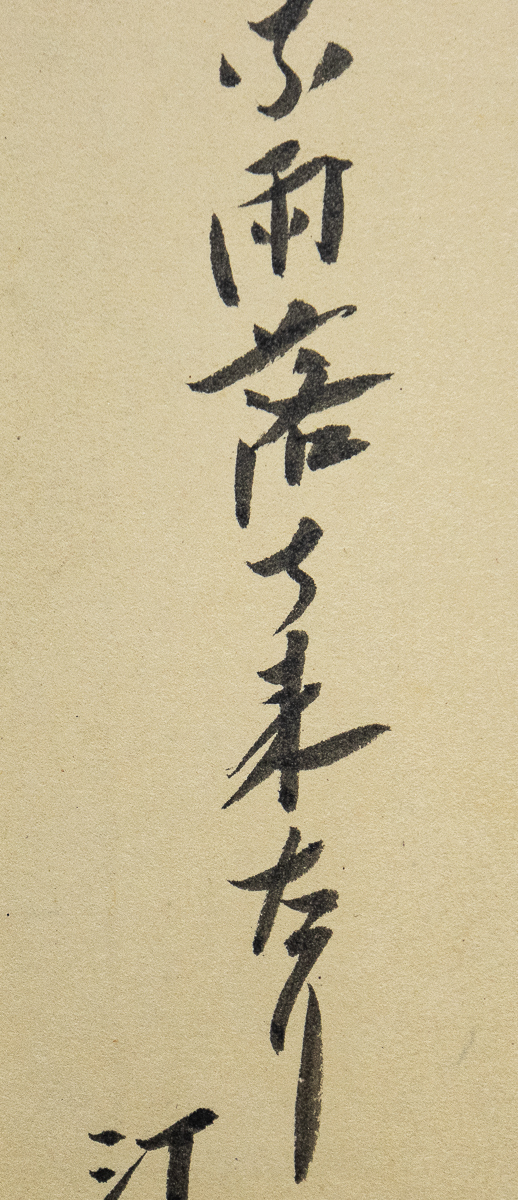 雨落ち来たり
汀